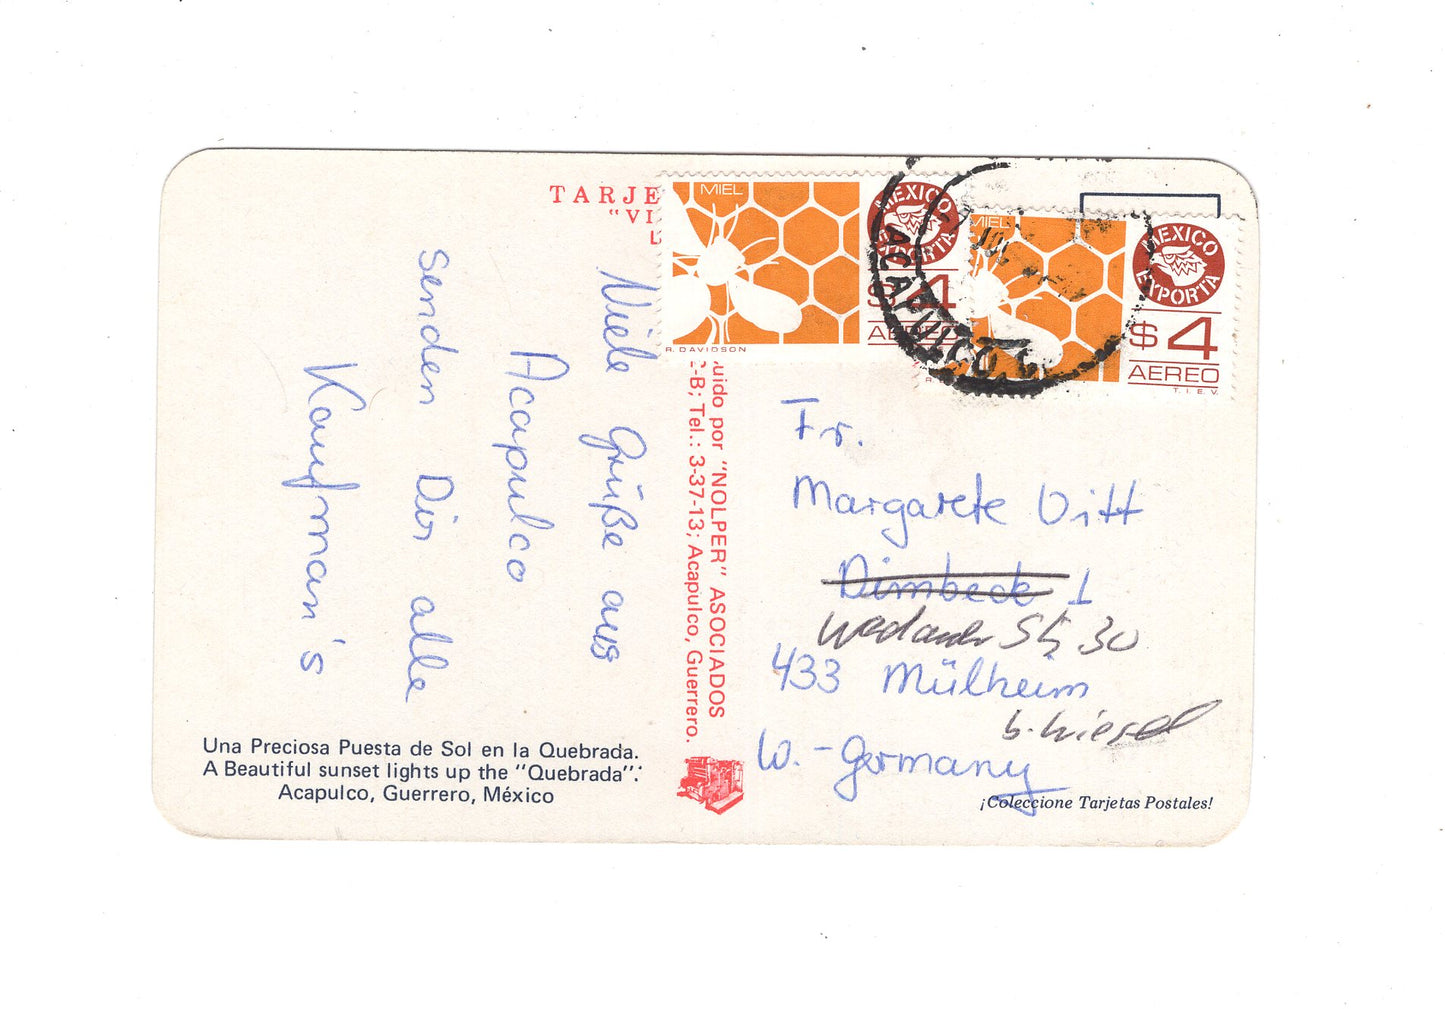 TARJE
"VI
Viele Grüße aus
Acapulco
senden Dir alle
Kaufman's
Una Preciosa Puesta de Sol en la Quebrada.
A Beautiful sunset lights up the "Quebrada".
Acapulco, Guerrero, México
uido por "NOLPER" ASOCIADOS
-B; Tel.: 3-37-13; Acapulco, Guerrero.
MIEL
MEXICO
EXPORTA
$4
AEREO
R. DAVIDSON
MIEL
MEXICO
EXPORTA
$4
AEREO
T.I.E.V.
ACAPULCO
Fr.
Margarete Vitt
Dimbeck 1
Str 30
433 Mülheim
W.-Germany
¡Coleccione Tarjetas Postales!